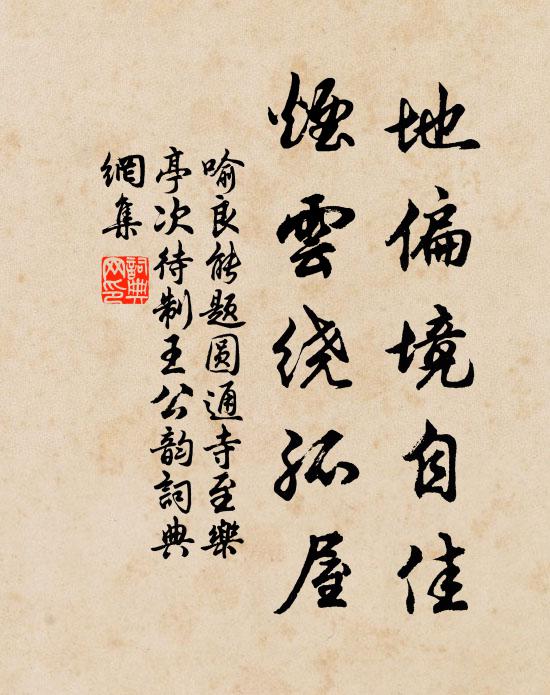 地偏境自佳
煙雲绕孤屋
喻良能題圆通寺至樂
亭次待制王公韵詞典
網集
詞典
网印